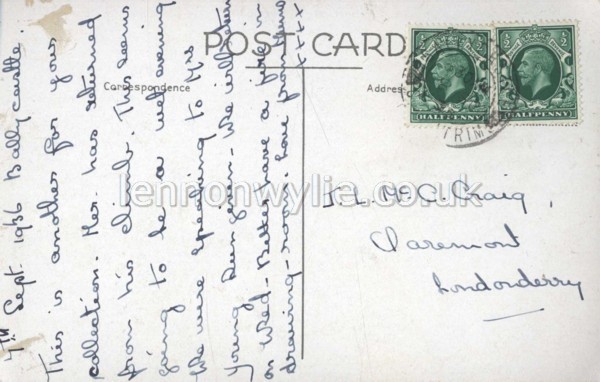 POST CARD
Correspondence
Address
HALFPENNY
HALFPENNY
TRIM
7th Sept. 1936 Ballycastle.
This is another for your
collection. Mr. has returned
from his climb. This seems
going to be a wet evening
We were speaking to Mrs
Young Dungiven. We will return
on Wed. Better have a fire in
drawing-room. Love from Lena
xxxx
J. L. McC. Craig,
Claremont
Londonderry
lennonwylie.co.uk